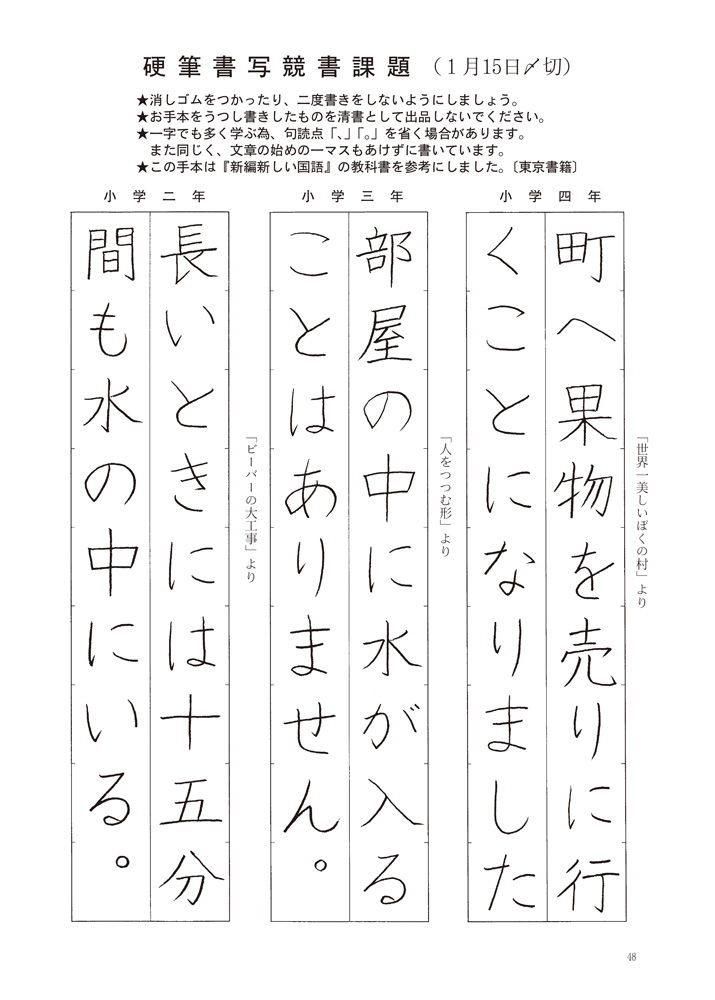 硬筆書写競書課題（１月15日〆切）
★消しゴムをつかったり、二度書きをしないようにしましょう。
★お手本をうつし書きしたものを清書として出品しないでください。
★一字でも多く学ぶ為、句読点「、」「。」を省く場合があります。
また同じく、文章の始めの一マスもあけずに書いています。
★この手本は『新編新しい国語』の教科書を参考にしました。〔東京書籍〕
小学四年
「世界一美しいぼくの村」より
町へ果物を売りに行
くことになりました
小学三年
「人をつつむ形」より
部屋の中に水が入る
ことはありません。
小学二年
「ビーバーの大工事」より
長いときには十五分
間も水の中にいる。
48